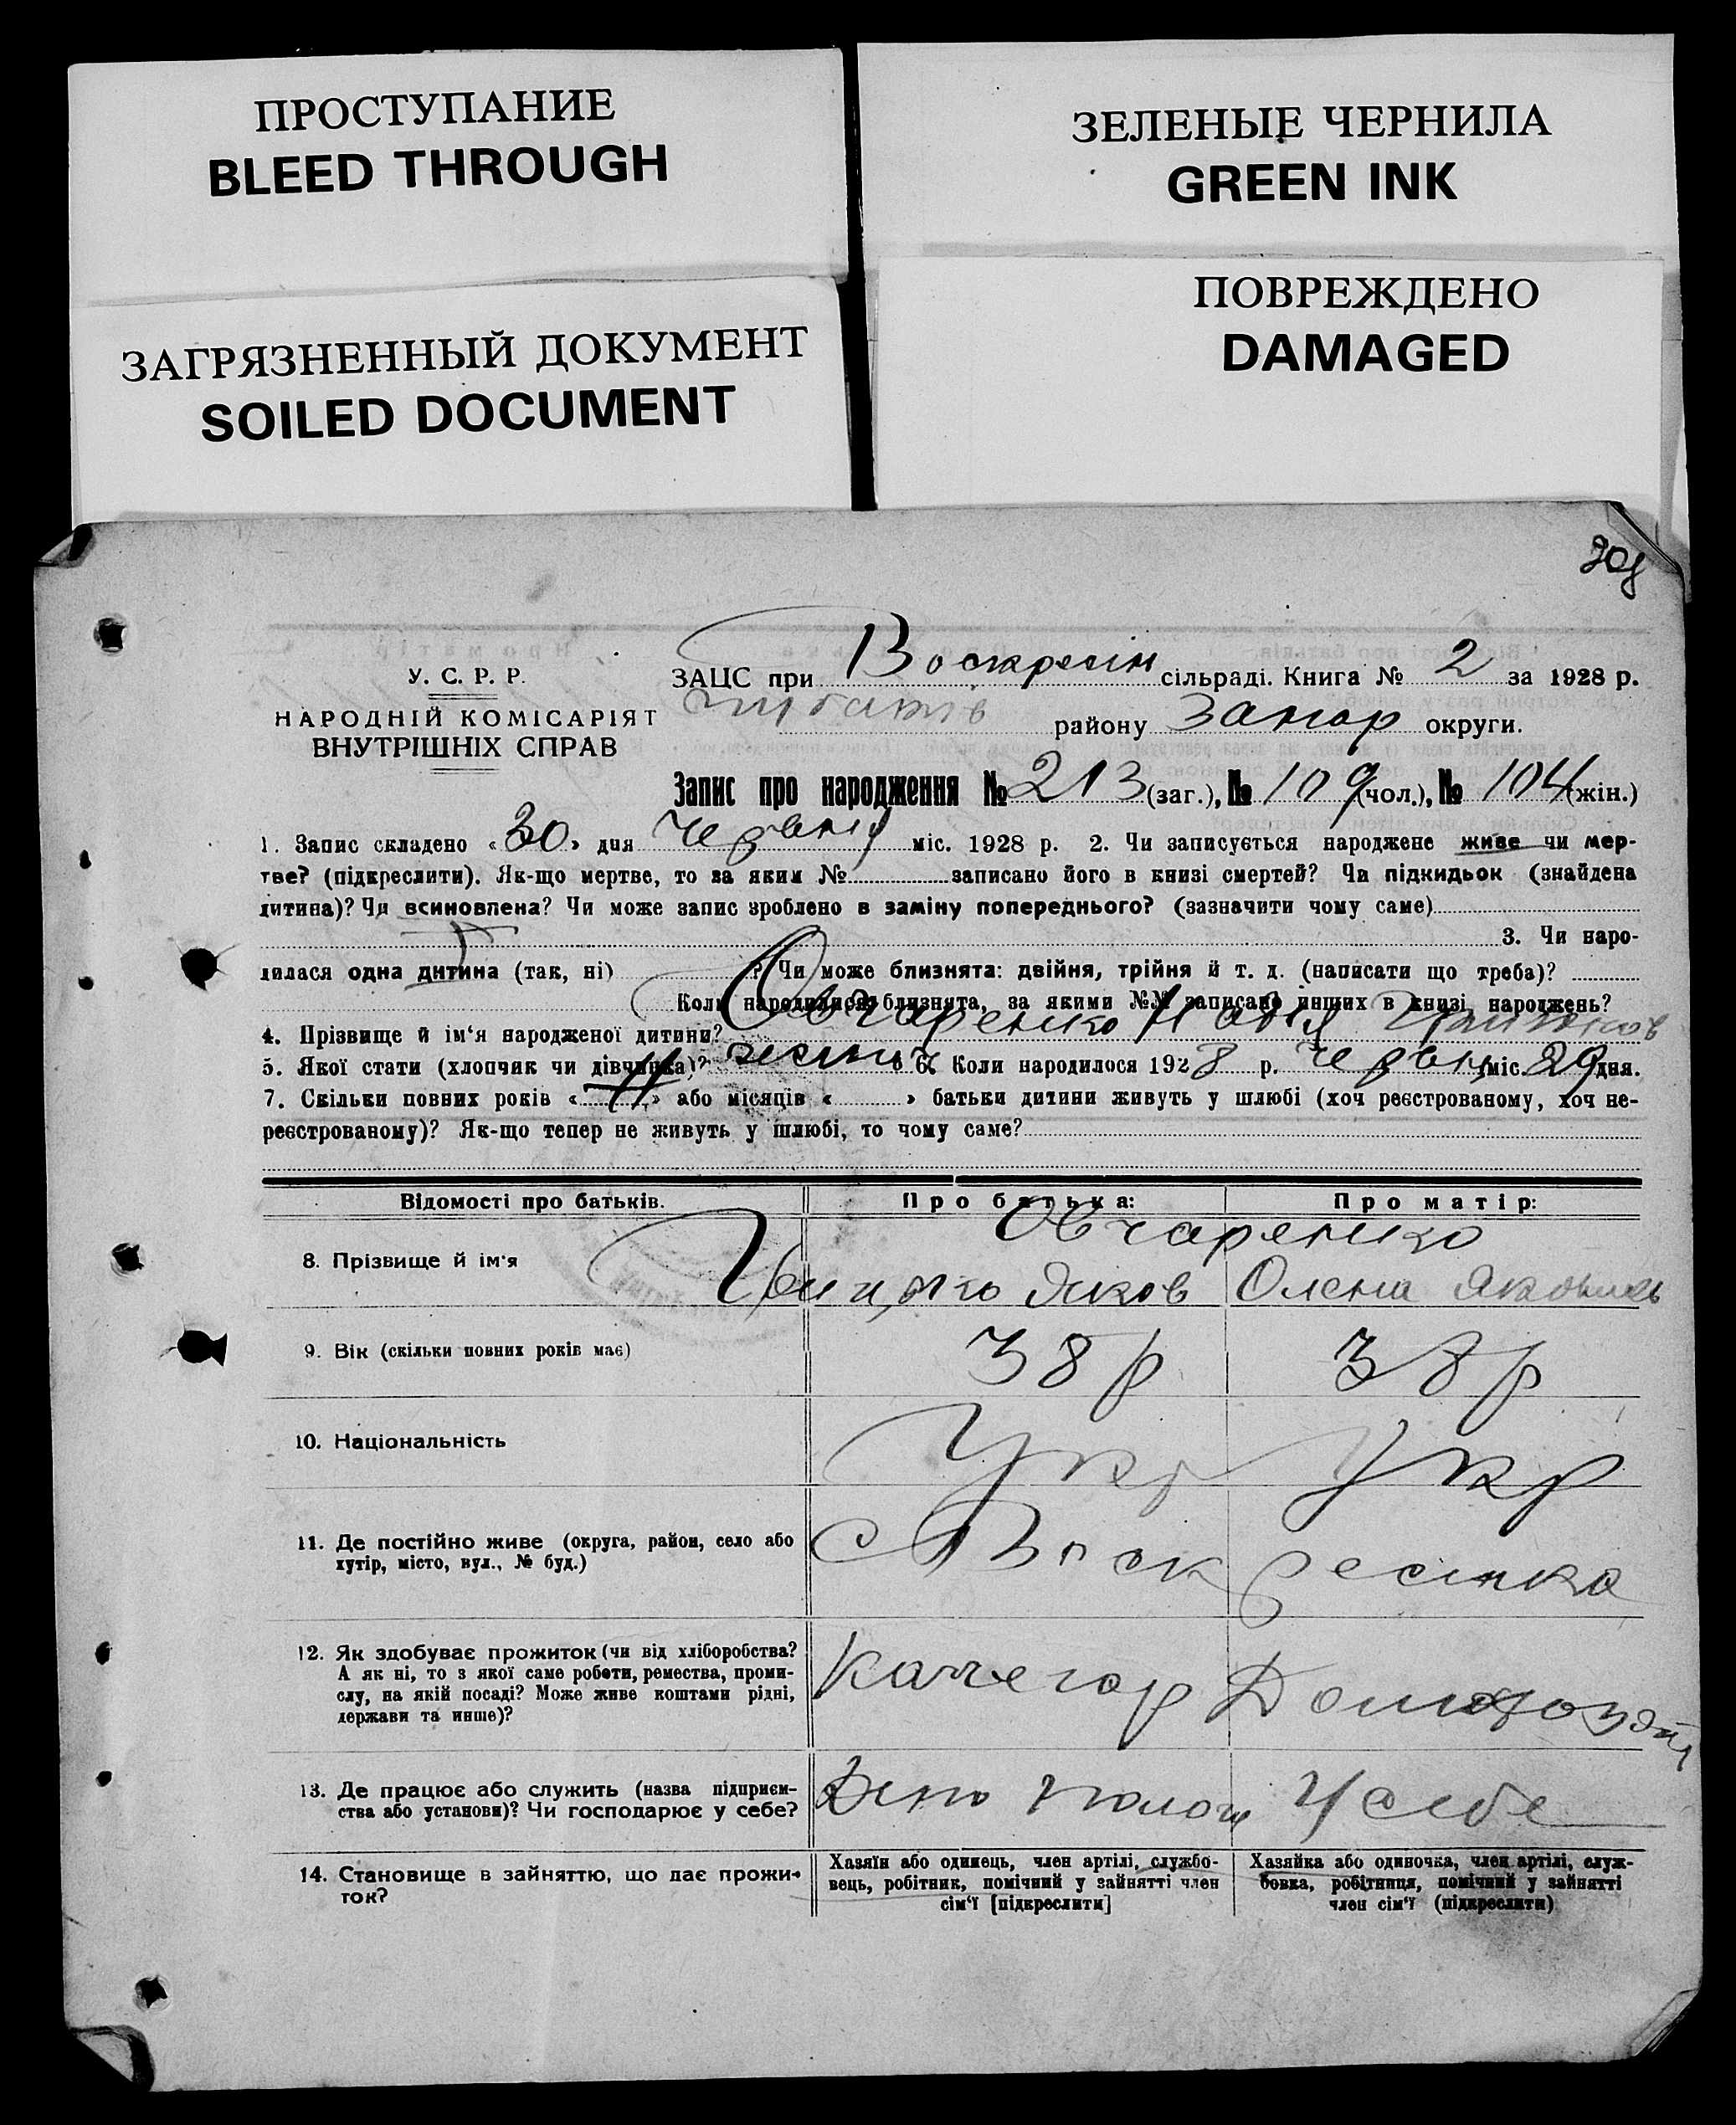 ПРОСТУПАНИЕ
BLEED THROUGH
ЗЕЛЕНЫЕ ЧЕРНИЛА
GREEN INK
ЗАГРЯЗНЕННЫЙ ДОКУМЕНТ
SOILED DOCUMENT
ПОВРЕЖДЕНО
DAMAGED
У. С. Р. Р.
НАРОДНІЙ КОМІСАРІЯТ
ВНУТРІШНІХ СПРАВ
ЗАЦС при Воскресін сільраді. Книга № 2 за 1928 р.
району Запор округи.
Запис про народження № 213 (заг.), № 109 (чол.), № 104 (жін.)
1. Запис складено «30» дня Червня міс. 1928 р. 2. Чи записується народжене живе чи мер-
тве? (підкреслити). Як-що мертве, то за яким № записано його в книзі смертей? Чи підкидьок (знайдена
дитина)? Чи всиновлена? Чи може запис зроблено в заміну попереднього? (зазначити чому саме)
3. Чи наро-
дилася одна дитина (так, ні) ? Чи може близнята: двійня, трійня й т. д. (написати що треба)?
Коли народилися близнята, за якими №№ записано инших в книзі народжень?
4. Прізвище й ім‘я народженої дитини? Овчаренко Надія
5. Якої стати (хлопчик чи дівчинка)? жіноч 6. Коли народилося 1928 р. Червня міс. 29 дня.
7. Скільки повних років « » або місяців « » батьки дитини живуть у шлюбі (хоч реєстрованому, хоч не-
реєстрованому)? Як-що тепер не живуть у шлюбі, то чому саме?
Відомості про батьків. Про батька: Про матір:
Овчаренко
8. Прізвище й ім‘я Грицько Яков Олена
9. Вік (скільки повних років має) 38 р 38 р
10. Національність Укр Укр
11. Де постійно живе (округа, район, село або
хутір, місто, вул., № буд.)
с Воскресінка
12. Як здобуває прожиток (чи від хліборобства?
А як ні, то з якої саме роботи, ремества, проми-
слу, на якій посаді? Може живе коштами рідні,
держави та инше)?
Качегар
13. Де працює або служить (назва підприєм-
ства або установи)? Чи господарює у себе?
Депо Пологи У себе
14. Становище в зайняттю, що дає прожи-
ток?
Хазяїн або одинець, член артілі, службо-
вець, робітник, помічний у зайнятті член
сім‘ї [підкреслити]
Хазяйка або одиночка, член артілі, служ-
бовка, робітниця, помічний у зайнятті
член сім‘ї (підкреслити)